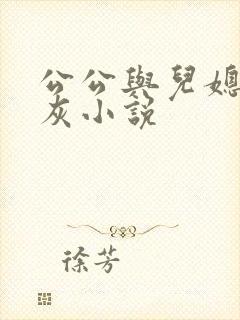 公公與兒媳
灰小說
徐芳